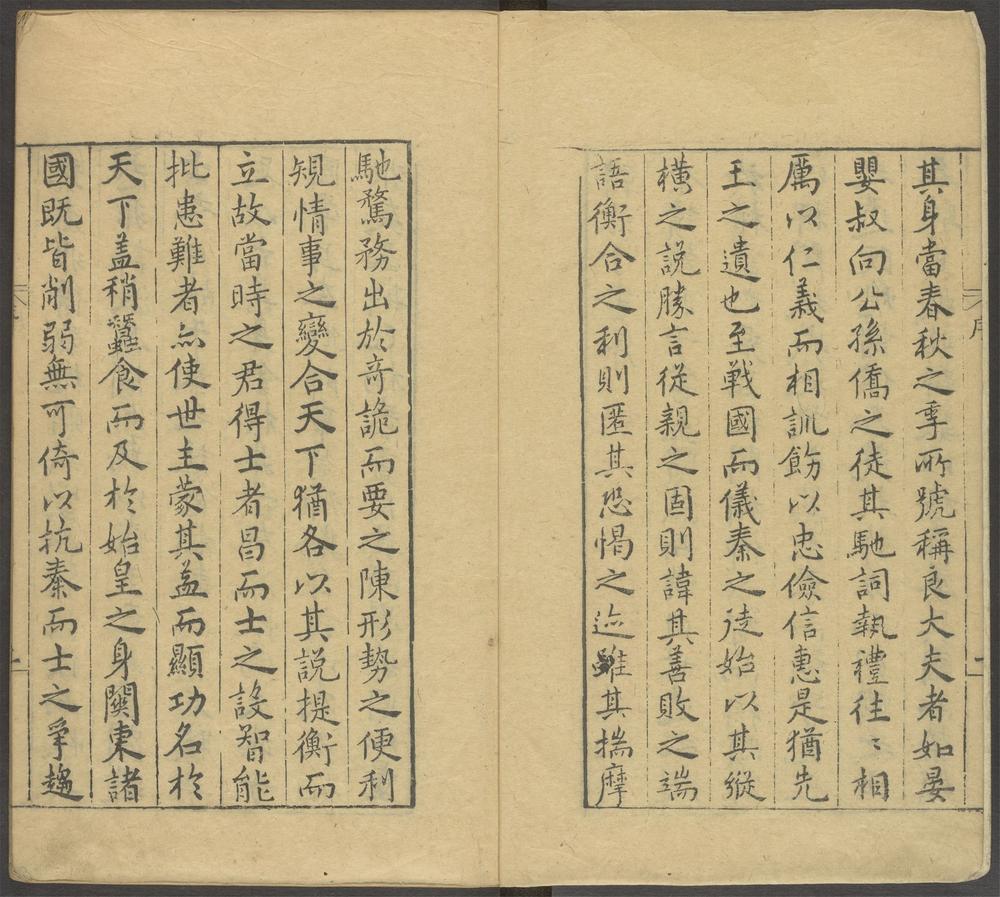 其身當春秋之季所號稱良大夫者如晏
嬰叔向公孫僑之徒其馳詞執禮往〻相
厲以仁義而相訓飭以忠儉信惠是猶先
王之遺也至戰國而儀秦之徒始以其縱
橫之說勝言從親之固則諱其善敗之端
語衡合之利則匿其恐愒之迹雖其揣摩
馳騖務出於奇詭而要之陳形勢之便利
䂓情事之變合天下猶各以其說提衡而
立故當時之君得士者昌而士之設智能
批患難者亦使世主蒙其益而顯功名於
天下盖稍蠶食而及於始皇之身關東諸
國既皆削弱無可倚以抗秦而士之爭趨
序
二